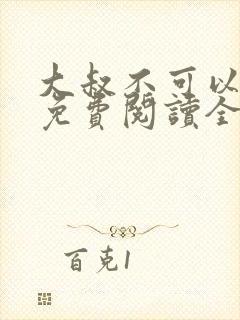 大叔不可以
免費閱讀全
百克1